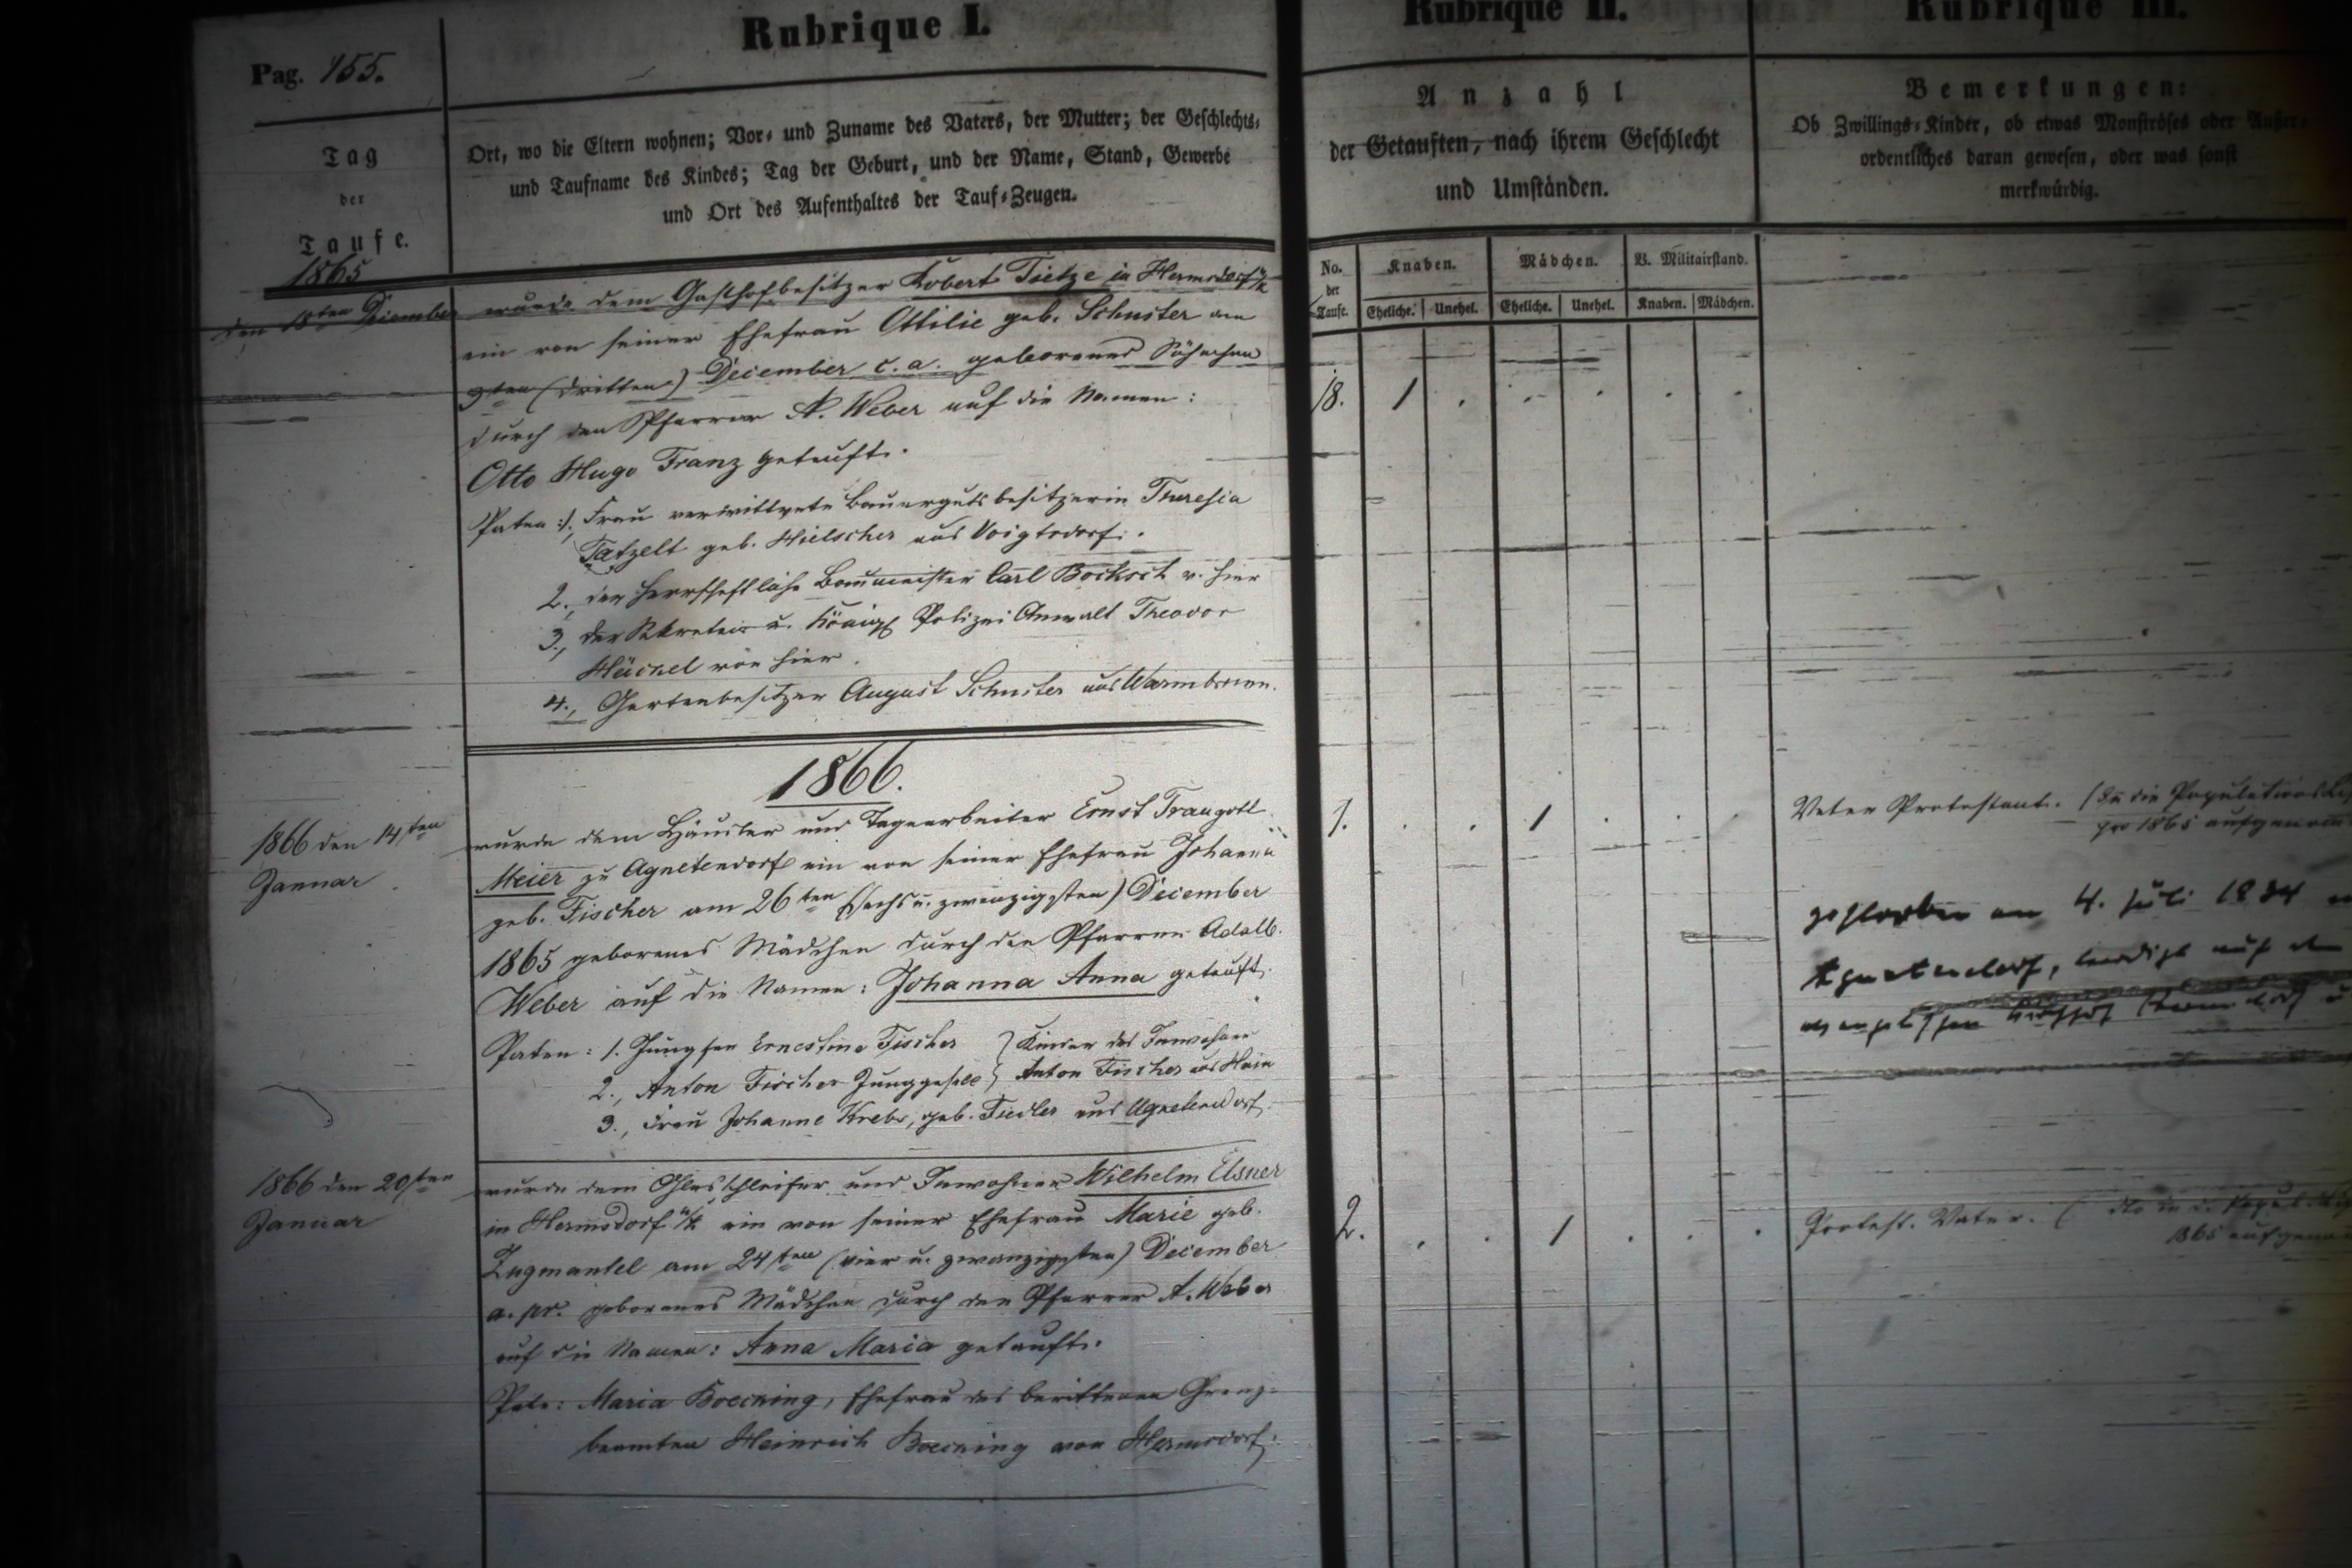 Pag. 155.
Rubrique I.
Tag
der
Taufe.
Ort, wo die Eltern wohnen; Vor- und Zuname des Vaters, der Mutter; der Geschlechts-
und Taufname des Kindes; Tag der Geburt, und der Name, Stand, Gewerbe
und Ort des Aufenthaltes der Tauf-Zeugen.
1865
den 18ten December
wurde dem Gasthofbesitzer Robert Tietze in Hermsdorf u/K
ein von seiner Ehefrau Ottilie geb. Schuster am
3ten (dritten) December c. a. geborenes Söhnchen
durch den Pfarrer A. Weber auf die Namen:
Otto Hugo Franz getauft.
Paten: 1, Frau verwittwete Bauergutsbesitzerin Theresia
Tatzelt geb. Hielscher aus Voigtsdorf.
2., der herrschaftliche Baumeister Carl Bocksch v. hier
3., der Sekretair u. Königl Polizei Anwalt Theodor
Häckel von hier.
4., Gartenbesitzer August Schuster aus Warmbrunn.
1866.
1866 den 14ten
Januar
wurde dem Häusler und Tagearbeiter Ernst Traugott
Meier zu Agnetendorf ein von seiner Ehefrau Johanna
geb. Fischer am 26ten (sechs u. zwanzigsten) December
1865 geborenes Mädchen durch den Pfarrer Adalb.
Weber auf die Namen: Johanna Anna getauft.
Paten: 1. Jungfer Ernestine Fischer } Kinder des Inwohner
2., Anton Fischer Junggeselle } Anton Fischer aus Hain
3., Frau Johanne Krebs, geb. Fiedler aus Agnetendorf.
1866 den 20sten
Januar
wurde dem Glasschleifer und Inwohner Wilhelm Elsner
in Hermsdorf u/K ein von seiner Ehefrau Marie geb.
Zugmantel am 24sten (vier u. zwanzigsten) December
a. pr. geborenes Mädchen durch den Pfarrer A. Weber
auf die Namen: Anna Maria getauft.
Pate: Maria Boecking, Ehefrau des berittenen Grenz-
beamten Heinrich Boecking von Hermsdorf.
Rubrique II.
Anzahl
der Getauften, nach ihrem Geschlecht
und Umständen.
No. der Taufe.
Knaben.
Mädchen.
B. Militairstand.
Eheliche. Unehel. Eheliche. Unehel. Knaben. Mädchen.
18. 1 . . . . .
1. . . 1 . . .
2. . . 1 . . .
Rubrique III.
Bemerkungen:
Ob Zwillings-Kinder, ob etwas Monströses oder Außer-
ordentliches daran gewesen, oder was sonst
merkwürdig.
Vater Protestant. (In die Populations
pro 1865 aufgenom
gestorben am 4. Juli 1934 in
Agnetendorf, beerdigt auf dem
evangelischen Kirchhof
Protest. Vater. ( dto in d.
1865 aufgenom